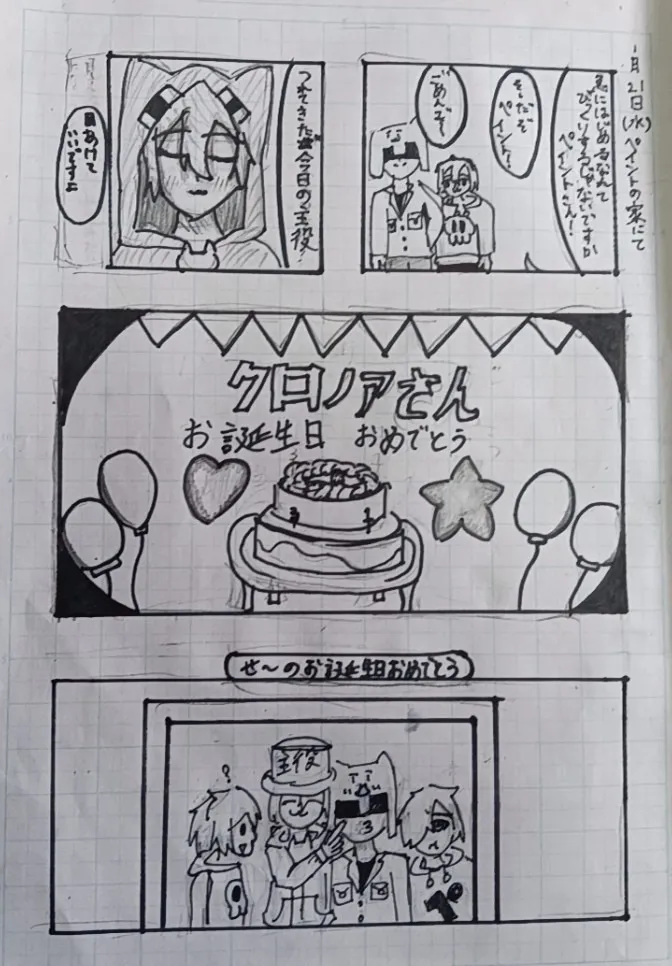 1月21日(水)ペイントの家にて
びっくりするじゃないですか
ペイントさん!
そーだぞ
ペイント!
ごめんぞ~
つれてきたぞ今日の主役
目あけて
いいですよ
クロノアさん
お誕生日 おめでとう
せ~のお誕生日おめでとう
主役
?
ペ